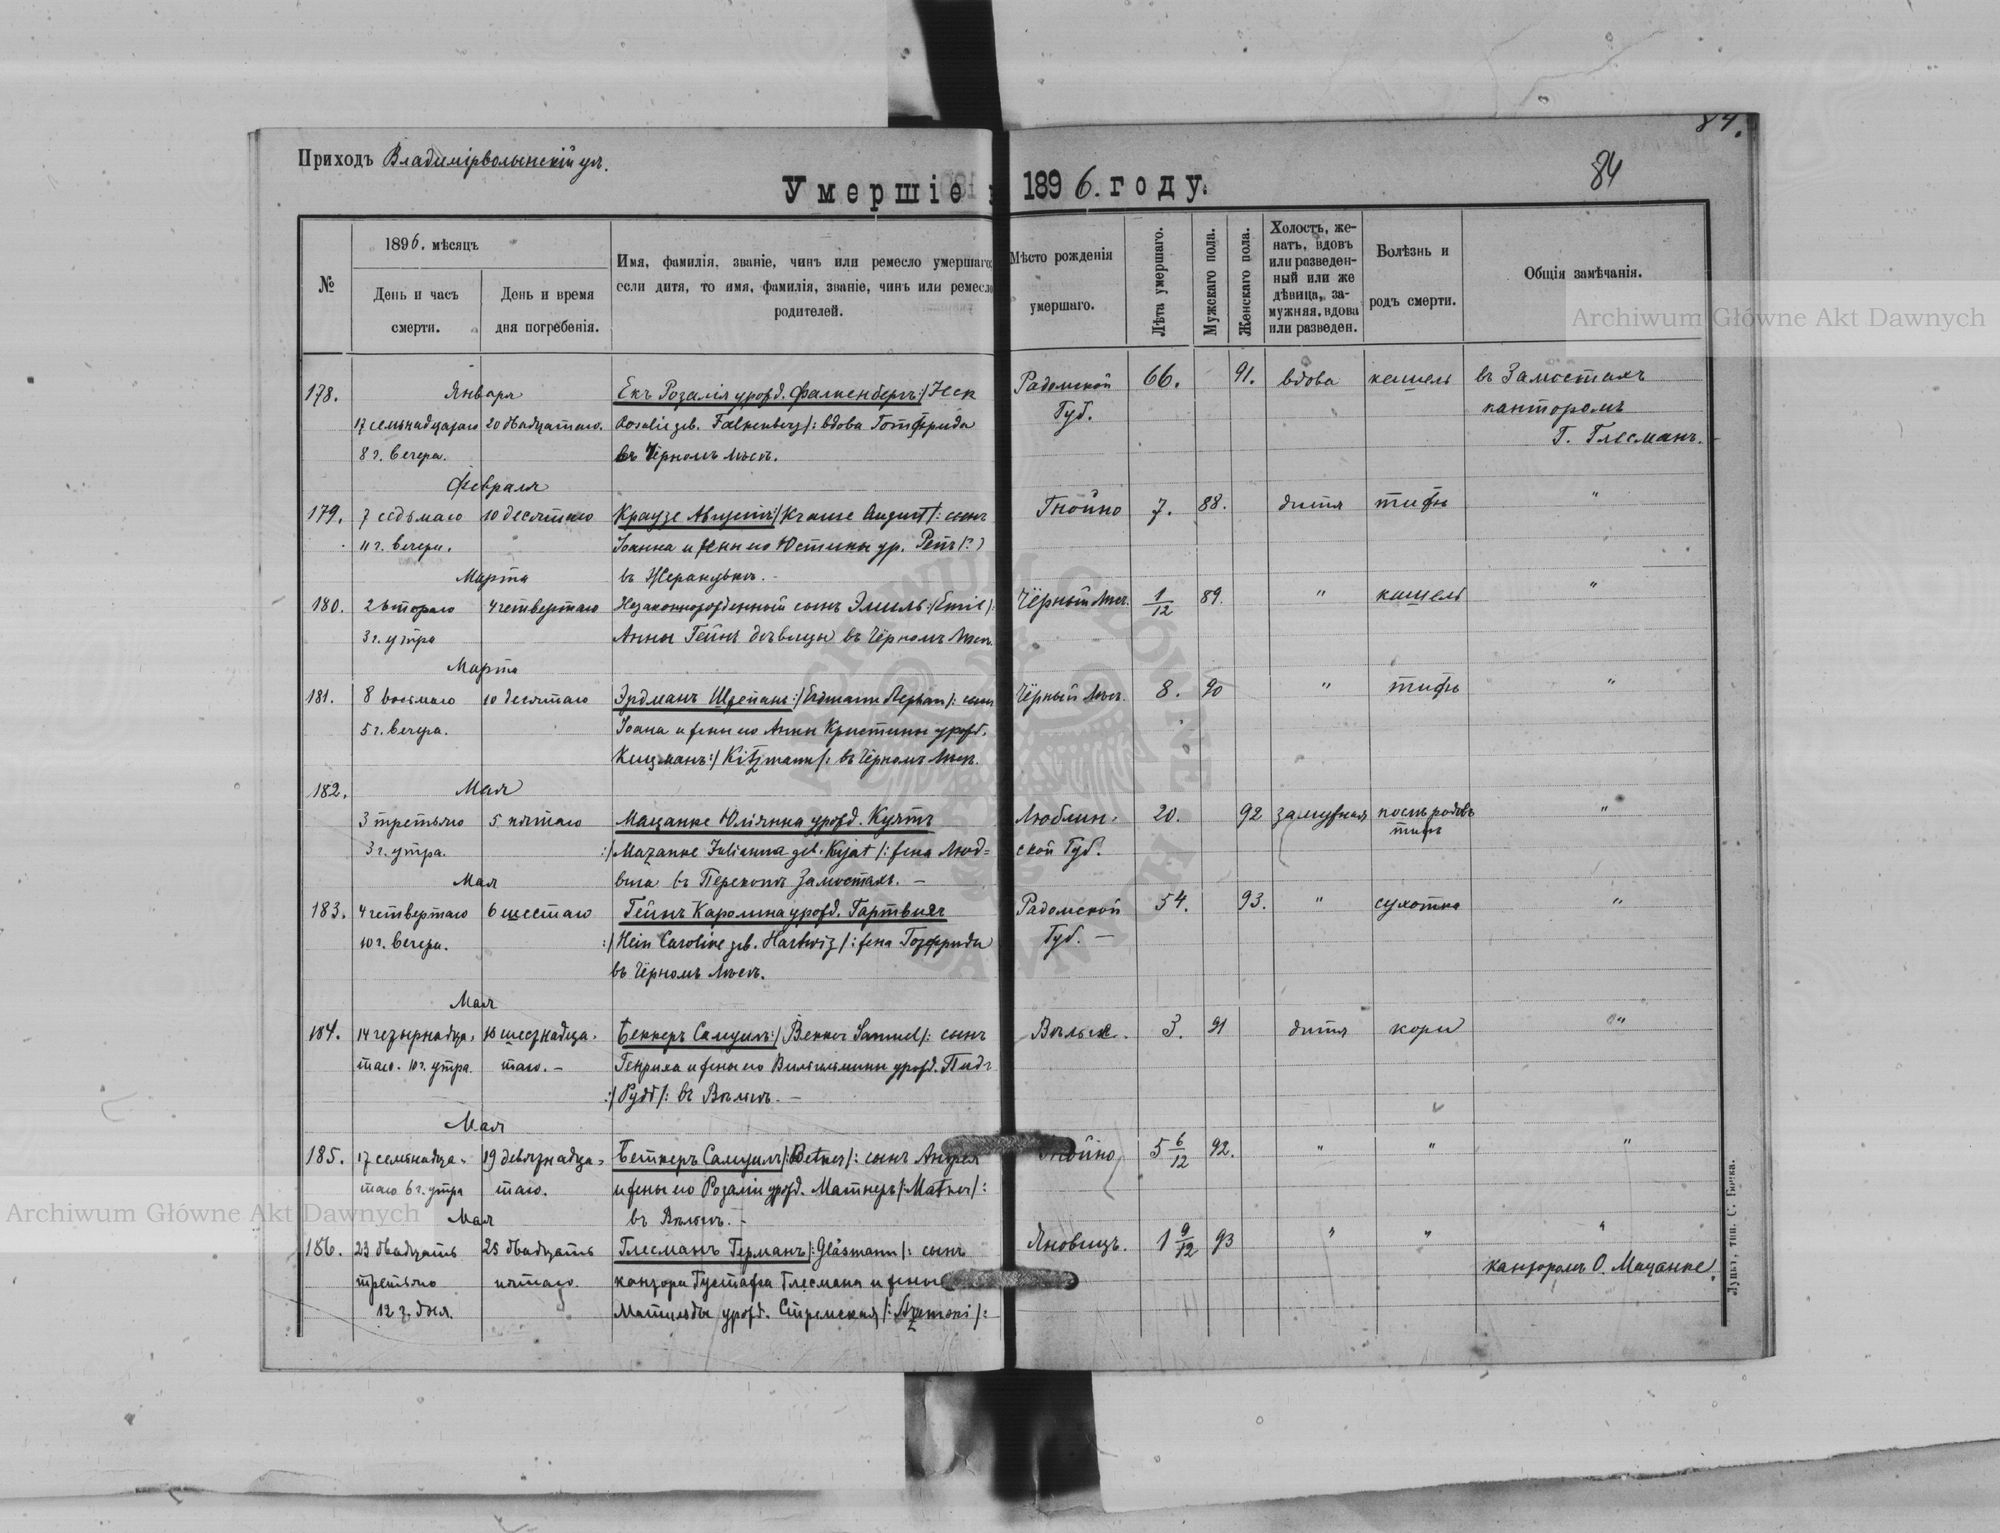 84.
Приходъ Владимірволынскій уѣ.
84
Умершіе 1896. году.
№
1896. мѣсяцъ
День и часъ смерти.
День и время дня погребенія.
Имя, фамилія, званіе, чинъ или ремесло умершаго
если дитя, то имя, фамилія, званіе, чинъ или ремесло
родителей.
Мѣсто рожденія умершаго.
Лѣта умершаго.
Мужскаго пола.
Женскаго пола.
Холостъ, же-
натъ, вдовъ
или разведен-
ный или же
дѣвица, за-
мужняя, вдова
или разведен.
Болѣзнь и родъ смерти.
Общія замѣчанія.
Archiwum Główne Akt Dawnych
178. Января Екъ Розалія урожд. Фалкенбергъ:/ Jeck Радомской 66. 91. вдова кашель въ Замостахъ
17 семьнадцатаго 20 двадцатаго. Rosalie geb. Falkenberg/: вдова Готфрида Губ. канторомъ
8 г. вечера. въ Чёрномъ лѣсѣ. Г. Глесманъ.
Февраля
179. 7 седьмаго 10 десятаго Краузе Августъ:/ Krause August/: сынъ Гнойно 7. 88. дитя тифъ "
11 г. вечера. Іоанна и жены его Юстины ур.
Марта въ
180. 2 втораго 4 четвертаго Незаконнорожденный сынъ Эмиль:/ Emil/: Чёрный лѣсъ. 1/12 89. " кашель "
3 г. утра Анны Гейнъ дѣвицы въ Чёрномъ лѣсѣ.
Марта
181. 8 восьмаго 10 десятаго Эрдманъ Щепанъ:/ Erdmann Stephan/: сынъ Чёрный лѣсъ. 8. 90 " тифъ "
5 г. вечера. Іоана и жены его Анны Кристины урожд.
Кицманъ:/ Kitzmann/: въ Чёрномъ лѣсѣ.
182. Мая
3 третьяго 5 пятаго Мацанке Юліянна урожд. Куятъ Люблин- 20. 92 замужняя послѣ родовъ "
3 г. утра. :/ Mazanke Julianna geb. Kujat/: жена Люд- ской Губ. тифъ
Мая вига въ Замостахъ. —
183. 4 четвертаго 6 шестаго Гейнъ Каролина урожд. Гартвихъ Радомской 54. 93. " сухотка "
10 г. вечера. :/ Hein Caroline geb. Hartwig/: жена Готфрида Губ. —
въ Чёрномъ лѣсѣ.
Мая
184. 14 четырнадца- 16 шестнадца- Беккеръ Самуилъ:/ Bekker Samuel/: сынъ 3. 91 дитя кори "
таго. 10 г. утра. таго. — Генриха и жены его Вильгельмины урожд.
въ
Мая
185. 17 семьнадца- 19 девятнадца- Беткеръ Самуилъ/: Betker/: сынъ Андрея Гнойно 5 6/12 92. " " "
таго 6 г. утра таго. и жены его Розаліи урожд. Маткеръ/: Matker/:
Мая въ
186. 23 двадцать 25 двадцать Глесманъ Германъ/: Gläsmann/: сынъ Яновицъ. 1 9/12 93 " " "
третьяго пятаго. кантора Густафа Глесмана и жены канторомъ О. Мацанке.
12 г. дня. Матильды урожд. Стремская
Archiwum Główne Akt Dawnych